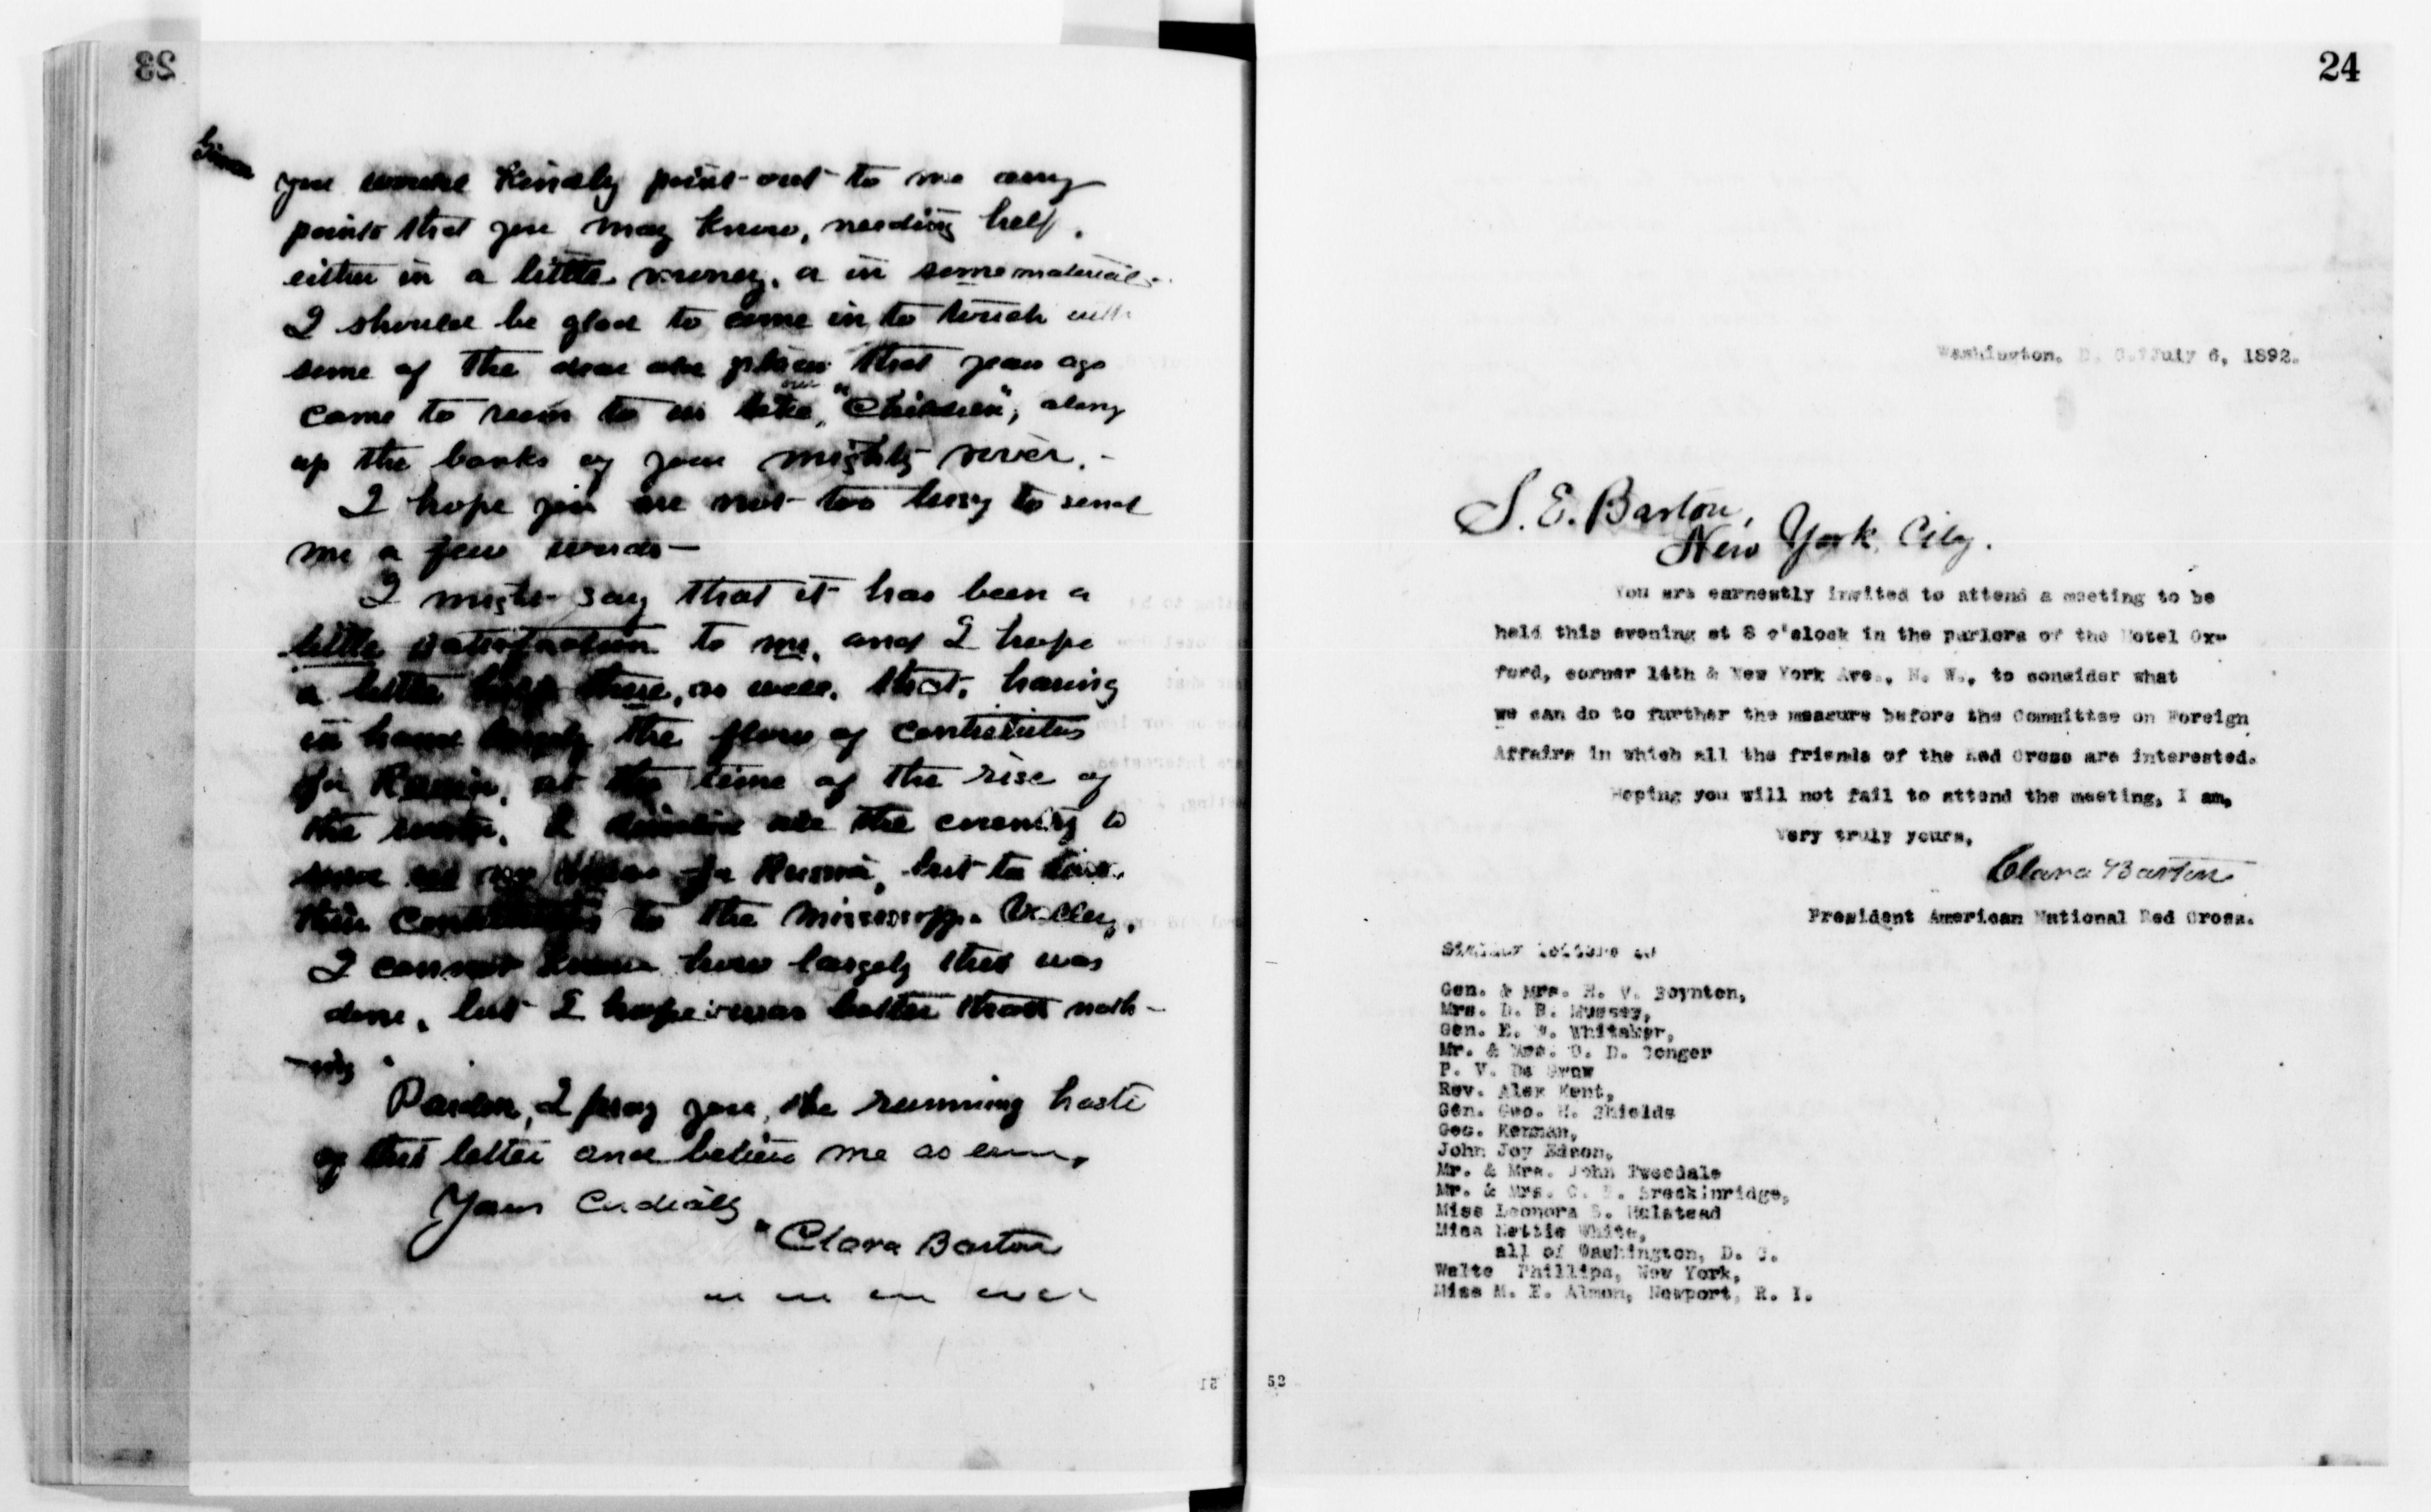 23
you would kindly point out to me any
points that you may know, needing help.
either in a little money, or in some material.
I should be glad to come in to touch with
some of the dear old places that years ago
came to seem to us like our "Children", along
up the banks of your mighty river.-
I hope you are not too busy to send
me a few words—
I might say that it has been a
little satisfaction to me, and I hope
a little help there, as well, that, having
in hand largely the flow of contributions
for Russia, at the time of the rise of
the I the country to
no for Russia, but to
their to the Mississippi Valley.
I cannot know how largely this was
done, but I hope it was better than noth-
-ing
Pardon, I pray you, the running haste
of this letter and believe me as ever,
Yours Cordially
"Clara Barton
51
24
Washington, D. C. July 6, 1892.
S. E. Barton,
New York City.
You are earnestly invited to attend a meeting to be
held this evening at 8 o'clock in the parlors of the Hotel Ox-
ford, corner 14th & New York Ave., N. W., to consider what
we can do to further the measure before the Committee on Foreign
Affairs in which all the friends of the Red Cross are interested.
Hoping you will not fail to attend the meeting, I am,
Very truly yours,
Clara Barton
President American National Red Cross.
Similar letters to
Gen. & Mrs. H. V. Boynton,
Mrs. D. R. Mussey,
Gen. E. W. Whitaker,
Mr. & Mrs. O. D. Conger
P. V. De Graw
Rev. Alex Kent,
Gen. Geo. H. Shields
Geo. Kennan,
John Joy Edson,
Mr. & Mrs. John Tweedale
Mr. & Mrs. C. Breckinridge,
Miss Leonora B. Halstead
Miss Nettie White,
all of Washington, D. C.
Walte Phillips, New York,
Miss M. E. Almon, Newport, R. I.
52